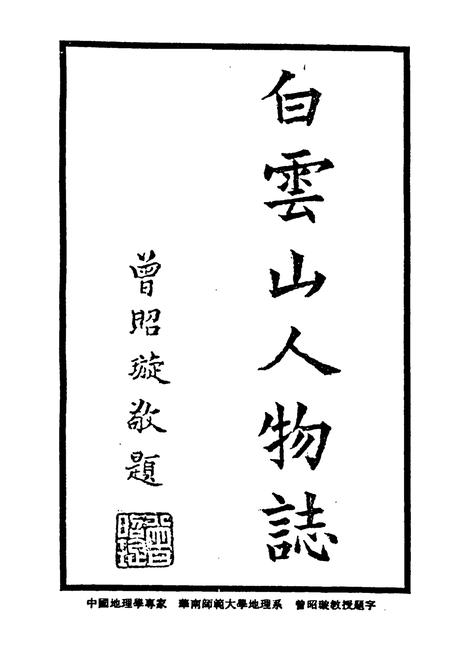 白雲山人物誌
曾昭璇敬題
曾昭璇
中國地理學專家　華南師範大學地理系　曾昭璇教授題字